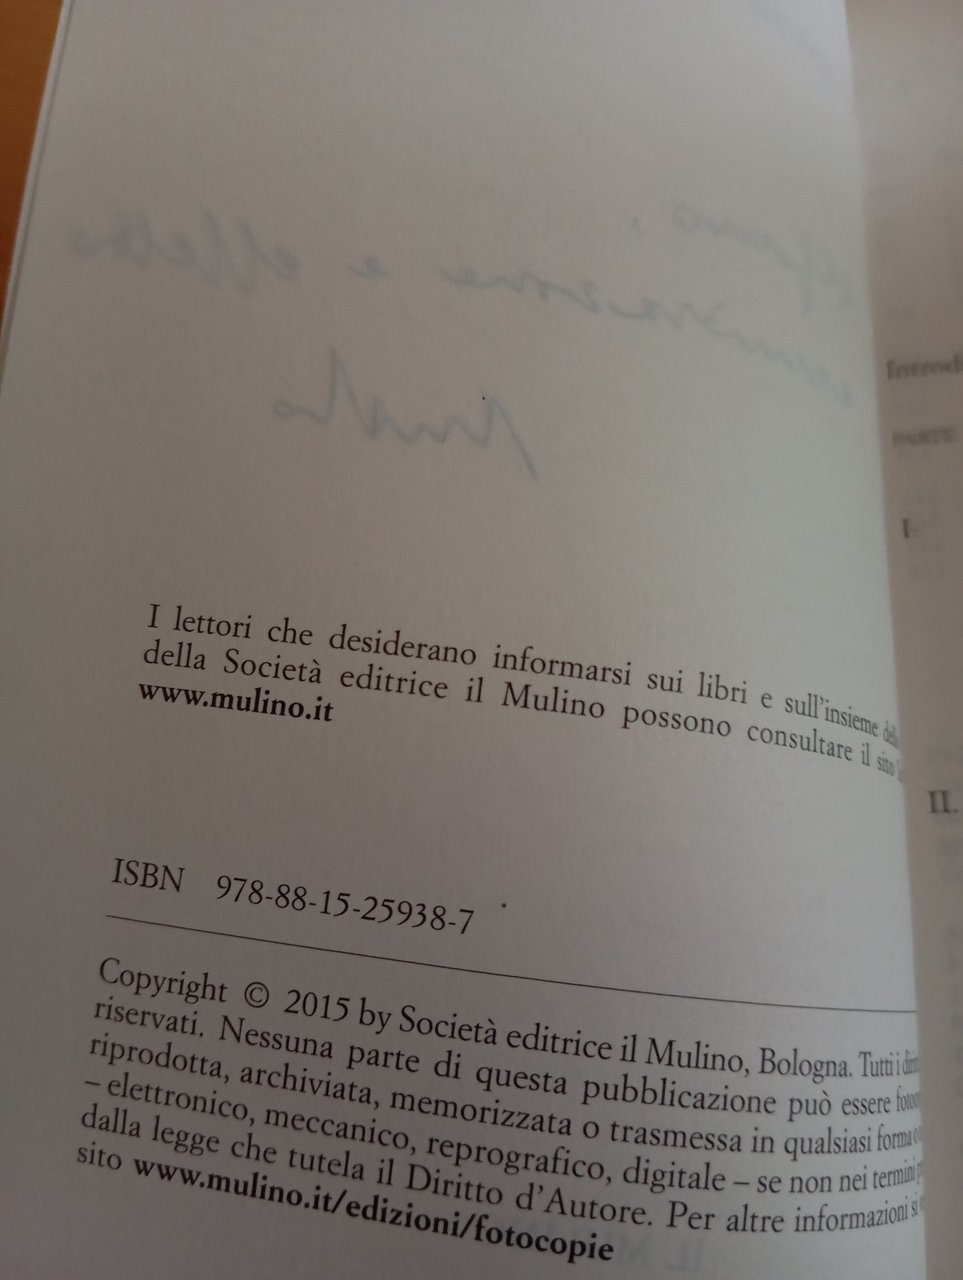 I lettori che desiderano informarsi sui libri e sull'insieme delle
della Società editrice il Mulino possono consultare il sito
www.mulino.it
ISBN 978-88-15-25938-7
Copyright © 2015 by Società editrice il Mulino, Bologna. Tutti i
riservati. Nessuna parte di questa pubblicazione può essere
riprodotta, archiviata, memorizzata o trasmessa in qualsiasi forma o
– elettronico, meccanico, reprografico, digitale – se non nei termini
dalla legge che tutela il Diritto d'Autore. Per altre informazioni si
sito www.mulino.it/edizioni/fotocopie
Introd
PARTE
I.
II.